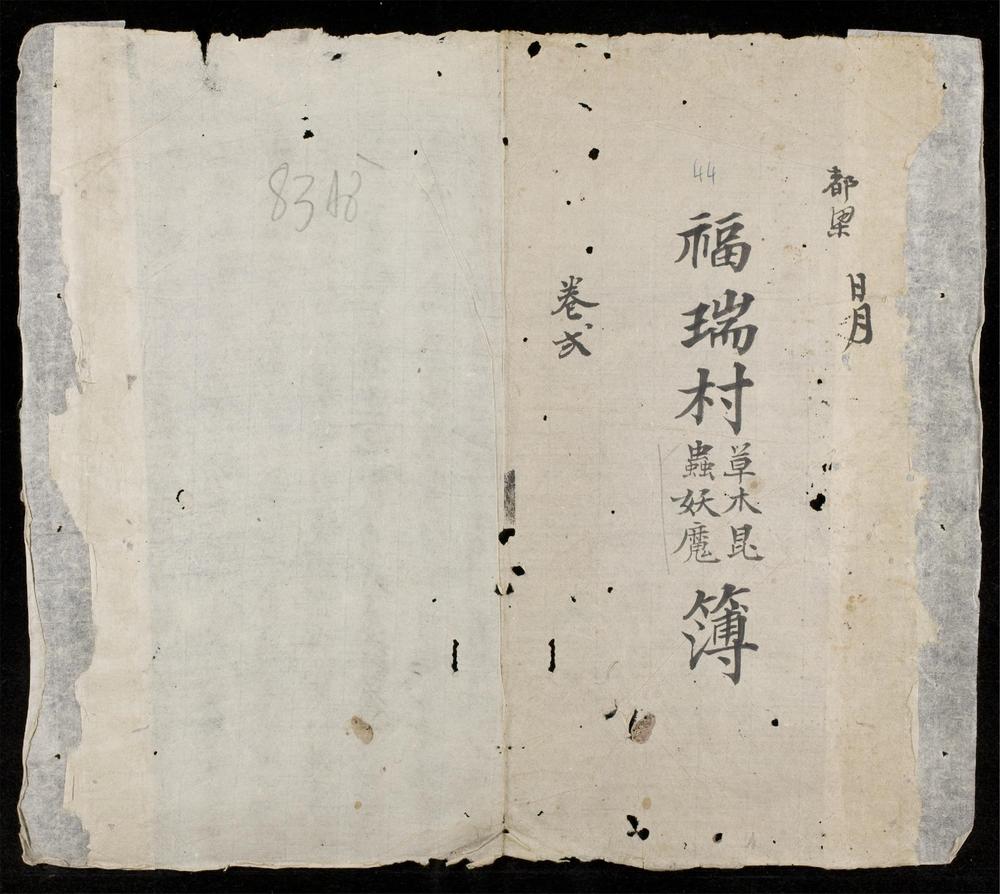 都梁
日月
44
福瑞村
草木昆
蟲妖魔
簿
卷弍